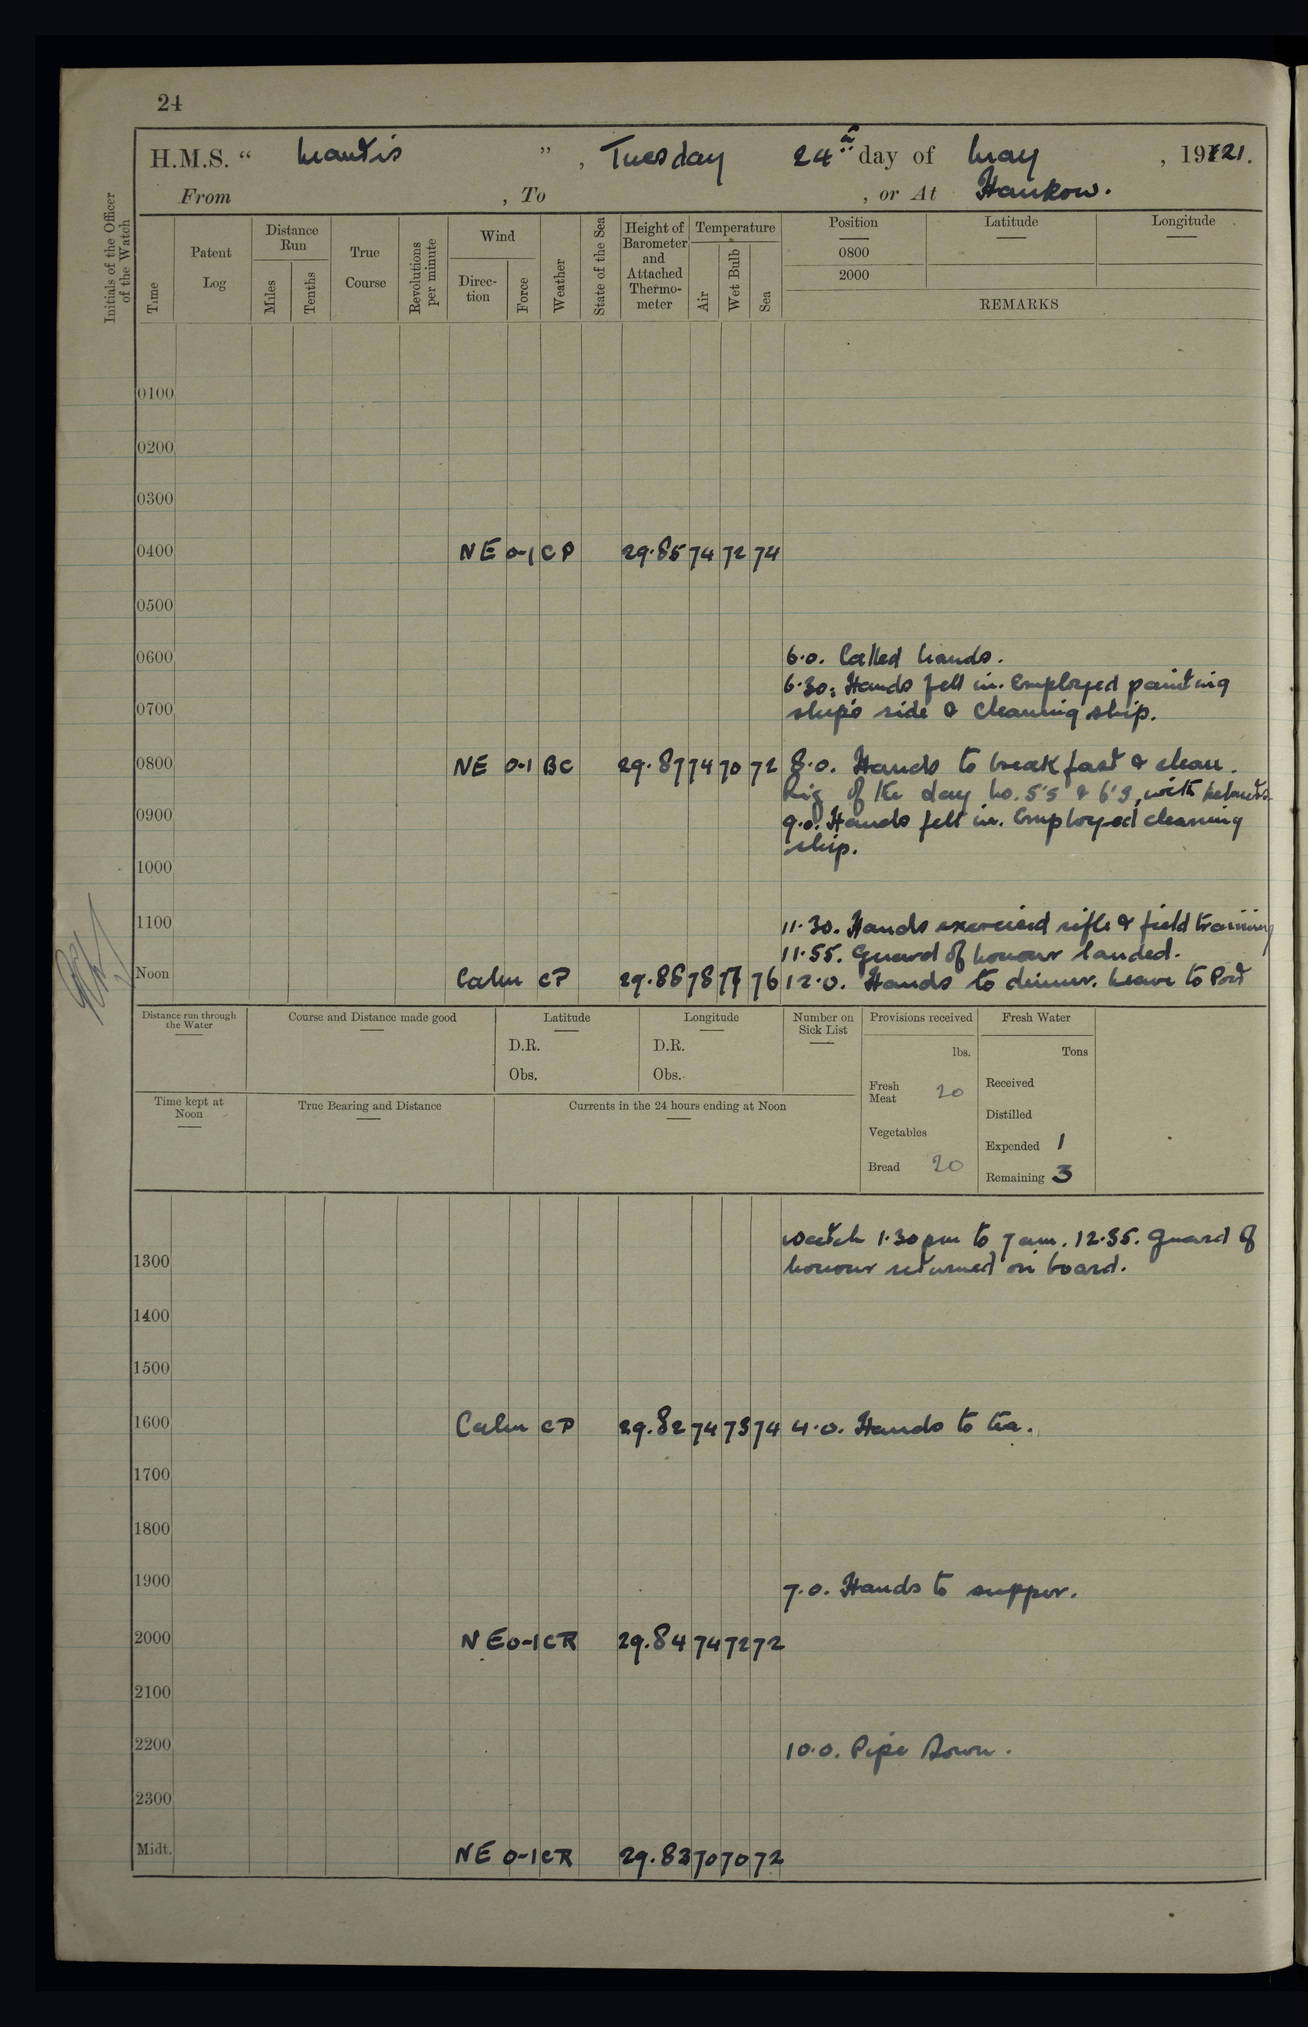 24
H.M.S. “ Mantis ” , Tuesday 24th day of May , 1921.
From , To , or At Hankow.
Initials of the Officer of the Watch
Time
Patent Log
Distance Run
Miles
Tenths
True Course
Revolutions per minute
Wind
Direc-tion
Force
Weather
State of the Sea
Height of Barometer and Attached Thermo-meter
Temperature
Air
Wet Bulb
Sea
Position
0800
2000
Latitude
Longitude
REMARKS
0100
0200
0300
0400 NE 0-1 CP 29.85 74 72 74
0500
0600 6.0. Called hands.
6.30. Hands fell in. Employed painting
0700 ship's side & cleaning ship.
0800 NE 0-1 BC 29.87 74 70 72 8.0. Hands to breakfast & clean.
Rig of the day No. 5's & 6's, with helmets
0900 9.0. Hands fell in. Employed cleaning
ship.
1000
1100 11.30. Hands exercised rifle & field training
11.55. Guard of honour landed.
Noon Calm CP 29.86 78 77 76 12.0. Hands to dinner. Leave to Port
Distance run through the Water
Course and Distance made good
Latitude
D.R.
Obs.
Longitude
D.R.
Obs.
Number on Sick List
Provisions received
lbs.
Fresh Meat 20
Vegetables
Bread 20
Fresh Water
Tons
Received
Distilled
Expended 1
Remaining 3
Time kept at Noon
True Bearing and Distance
Currents in the 24 hours ending at Noon
watch 1.30 pm to 7 am. 12.35. Guard of
1300 honour returned on board.
1400
1500
1600 Calm CP 29.82 74 73 74 4.0. Hands to tea.
1700
1800
1900 7.0. Hands to supper.
2000 NE 0-1 CR 29.84 74 72 72
2100
2200 10.0. Pipe Down.
2300
Midt. NE 0-1 CR 29.83 70 70 72